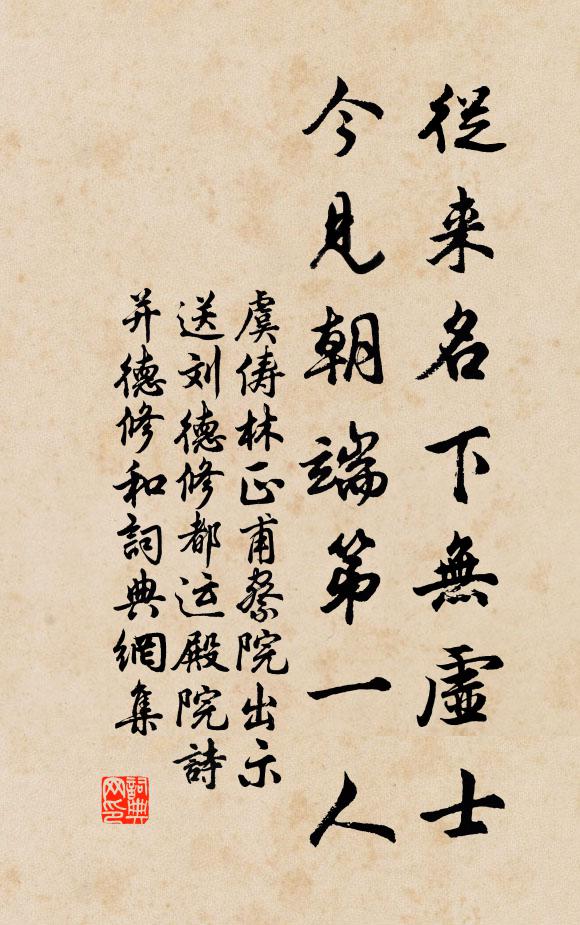 從来名下無虛士
今見朝端第一人
虞儔林正甫察院出示
送刘德修都运殿院詩
并德修和詞典網集
詞典
网印